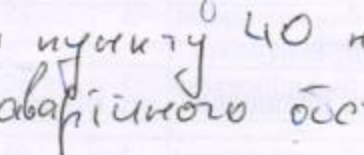 пункту 40
аварійного обс